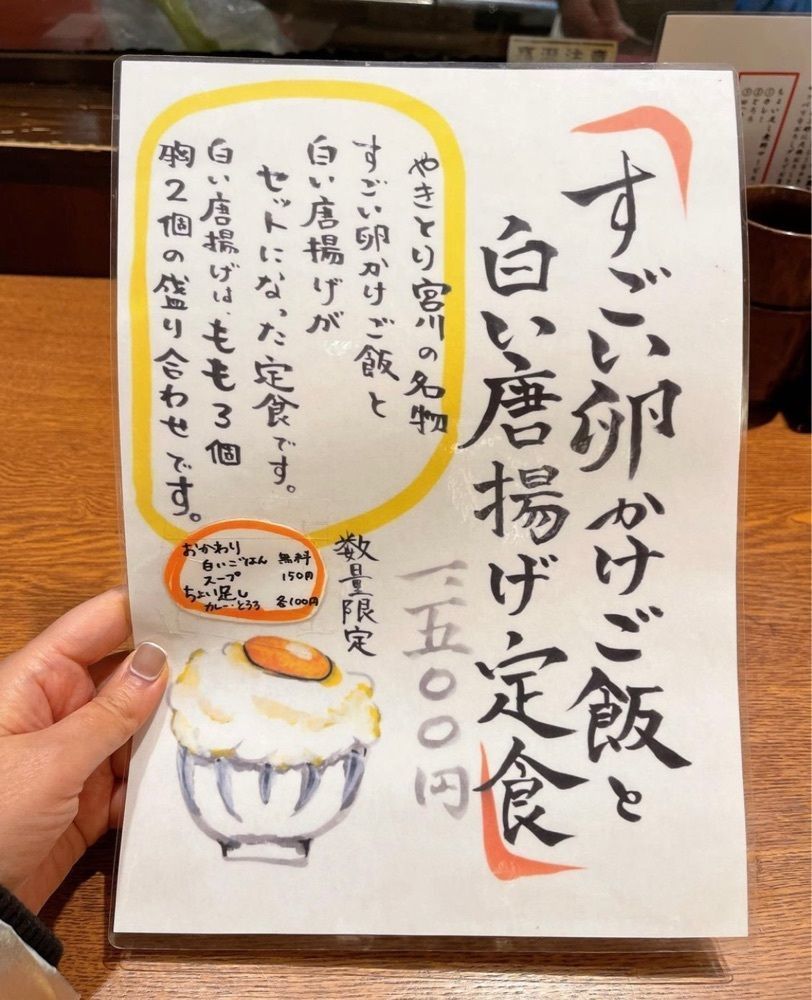 すごい卵かけご飯と
白い唐揚げ定食
一五〇〇円
数量限定
やきとり宮川の名物
すごい卵かけご飯と
白い唐揚げが
セットになった定食です。
白い唐揚げは、もも3個
胸2個の盛り合わせです。
おかわり
白いごはん 無料
スープ 150円
ちょい足し
カレー・とろろ 各100円